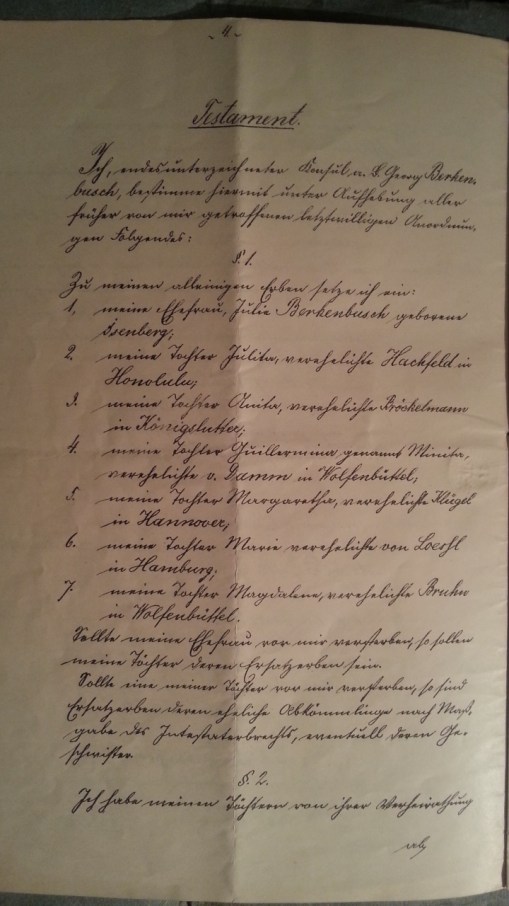 - 4. -
Testament.
Ich, endesunterzeichneter Konsul a. D. Georg Berken-
busch, bestimme hiermit unter Aufhebung aller
früher von mir getroffenen letztwilligen Anordnun-
gen Folgendes:
§. 1.
Zu meinen alleinigen Erben setze ich ein:
1, meine Ehefrau, Julie Berkenbusch geborene
Isenberg;
2. meine Tochter Julita, verehelichte Hackfeld in
Honolulu;
3. meine Tochter Anita, verehelichte Bröckelmann
in Königslutter;
4. meine Tochter Guillermina genannt Minita,
verehelichte v. Damm in Wolfenbüttel;
5. meine Tochter Margaretha, verehelichte Klügel
in Hannover;
6. meine Tochter Marie verehelichte von
in Hamburg;
7. meine Tochter Magdalene, verehelichte Bruhn
in Wolfenbüttel.
Sollte meine Ehefrau vor mir versterben, so sollen
meine Töchter deren Ersatzerben sein.
Sollte eine meiner Töchter vor mir versterben, so sind
Ersatzerben deren eheliche Abkömmlinge nach Maß-
gabe des Intestaterbrechts, eventuell deren Ge-
schwister.
§. 2.
Ich habe meinen Töchtern von ihrer Verheirathung
ab